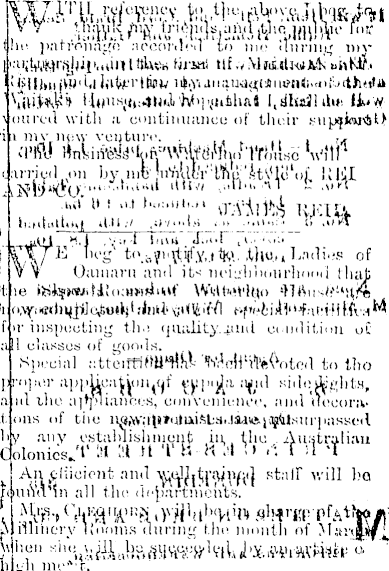 WITH reference to the above I beg to
thank my friends and the public for
the patronage accorded to me during my
partnership in the firm of
and later in my management of the
House, and hope that I shall be
voured with a continuance of their support
in my new venture.
The Business on Waterloo House will
carried on by me under the style of REI
AND CO.
JAMES REID,
WE beg to notify to the Ladies of
Oamaru and its neighbourhood that
the Show Rooms of Waterloo House are
now completed, and afford special facilities
for inspecting the quality and condition of
all classes of goods.
Special attention has been devoted to the
proper application of cupola and sidelights,
and the appliances, convenience, and decora-
tions of the new premises are unsurpassed
by any establishment in the Australian
Colonies.
An efficient and well-trained staff will be
found in all the departments.
Mrs. CLEGHORN will be in charge of the
Millinery Rooms during the month of March
when she will be succeeded by an artiste o
high merit.